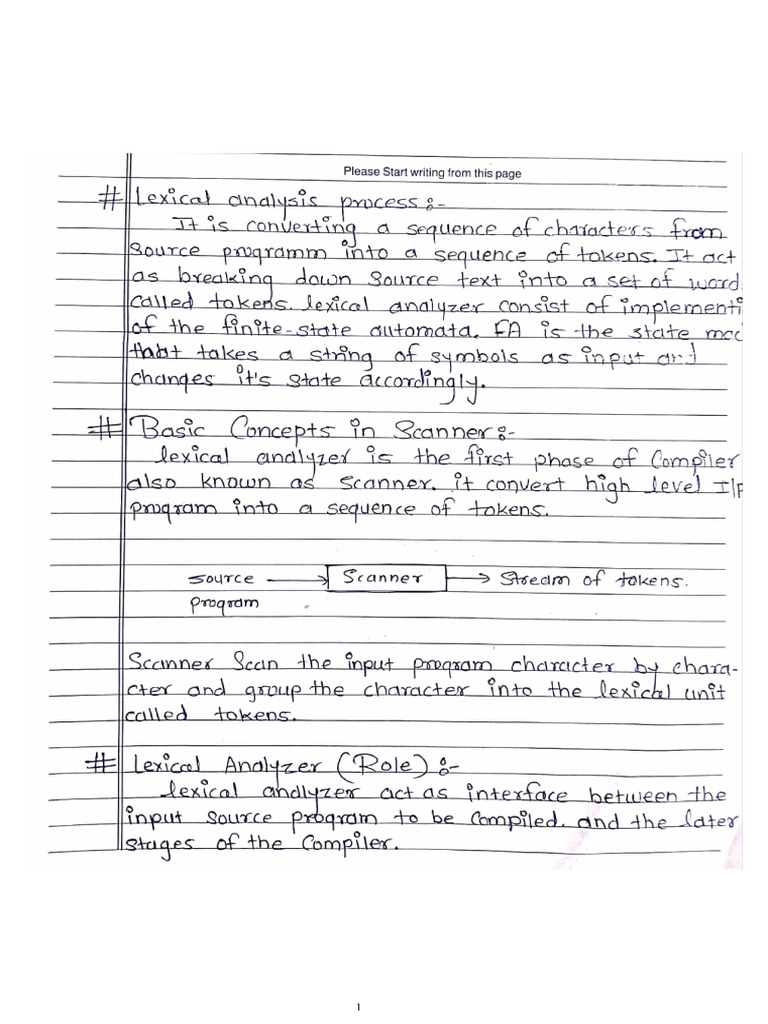 Please Start writing from this page
# Lexical analysis process :-
It is converting a sequence of characters from
source programm into a sequence of tokens. It act
as breaking down source text into a set of word
called tokens. lexical analyzer consist of implementi
of the finite-state automata. FA is the state mac
that takes a string of symbols as input and
changes it's state accordingly.
# Basic Concepts in Scanner :-
lexical analyzer is the first phase of Compiler
also known as scanner. it convert high level I/p
program into a sequence of tokens.
source → Scanner → stream of tokens.
program
Scanner Scan the input program character by chara-
cter and group the character into the lexical unit
called tokens.
# Lexical Analyzer (Role) :-
lexical analyzer act as interface between the
input source program to be compiled. and the later
stages of the Compiler.
1